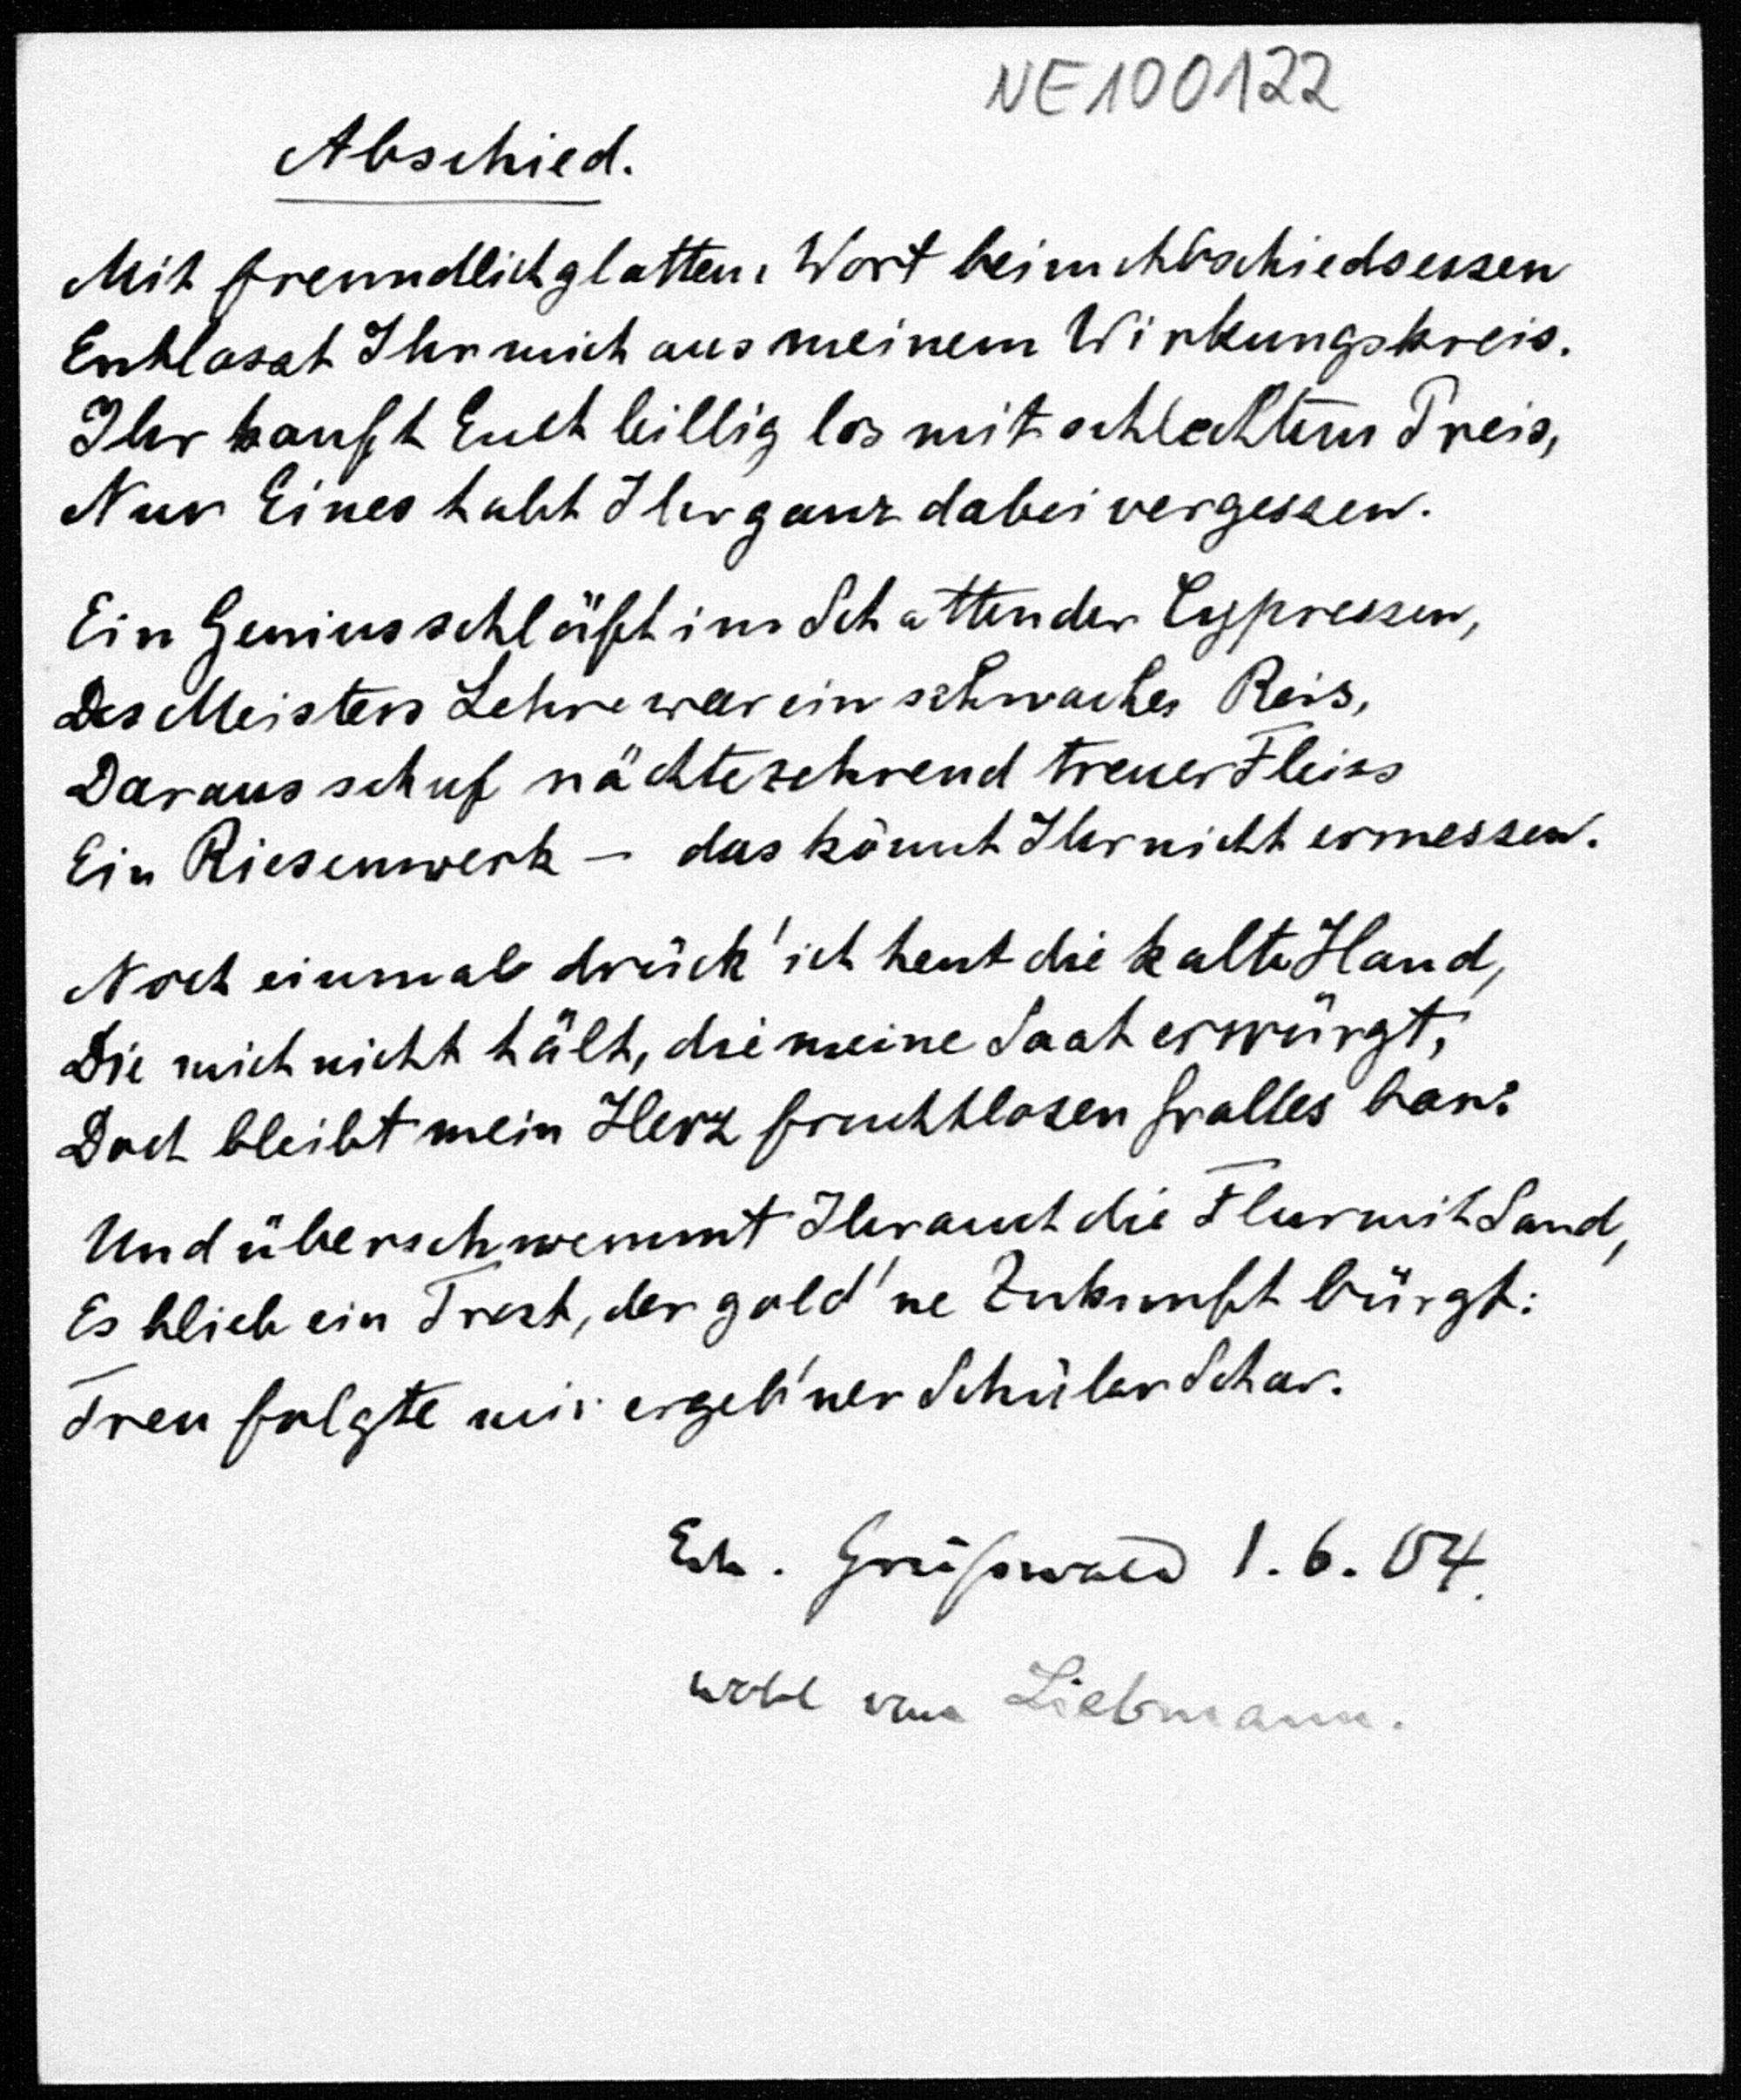 NE100122
Abschied.
Mit freundlich glattem Wort beim Abschiedsessen
Entlasst Ihr mich aus meinem Wirkungskreis.
Ihr kauft Euch billig los mit schlechtem Preis,
Nur Eines habt Ihr ganz dabei vergessen.
Ein Genius schläft im Schatten der Cypressen,
Des Meisters Lehre war ein schwaches Reis,
Daraus schuf nächtezehrend treuer Fleiss
Ein Riesenwerk – das könnt Ihr nicht ermessen.
Noch einmal drück' ich heut die kalte Hand,
Die mich nicht hält, die meine Saat erwürgt,
Doch bleibt mein Herz fruchtlosen Grolles bar:
Und überschwemmt Ihr auch die Flur mit Sand,
Es blieb ein Trost, der gold'ne Zukunft bürgt:
Treu folgte mir ergeb'ner Schüler Schar.
Greifswald 1.6.04.
wohl von Liebmann.